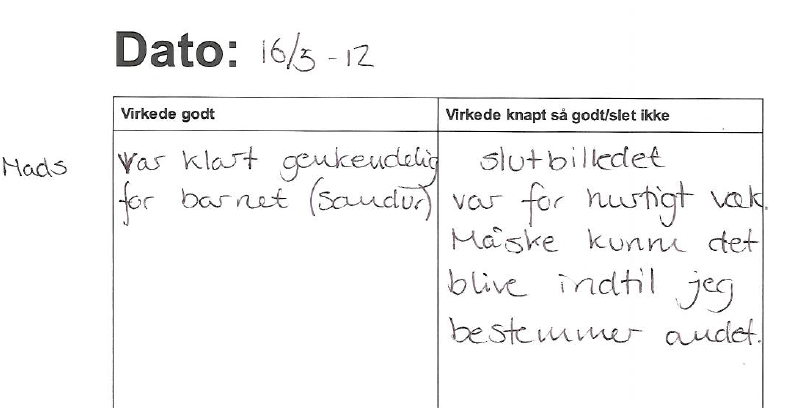 Dato: 16/5-12
Virkede godt
Virkede knapt så godt/slet ikke
Mads
Var klart genkendelig
for barnet (sandur)
slutbilledet
var for hurtigt væk.
Måske kunne det
blive indtil jeg
bestemmer andet.